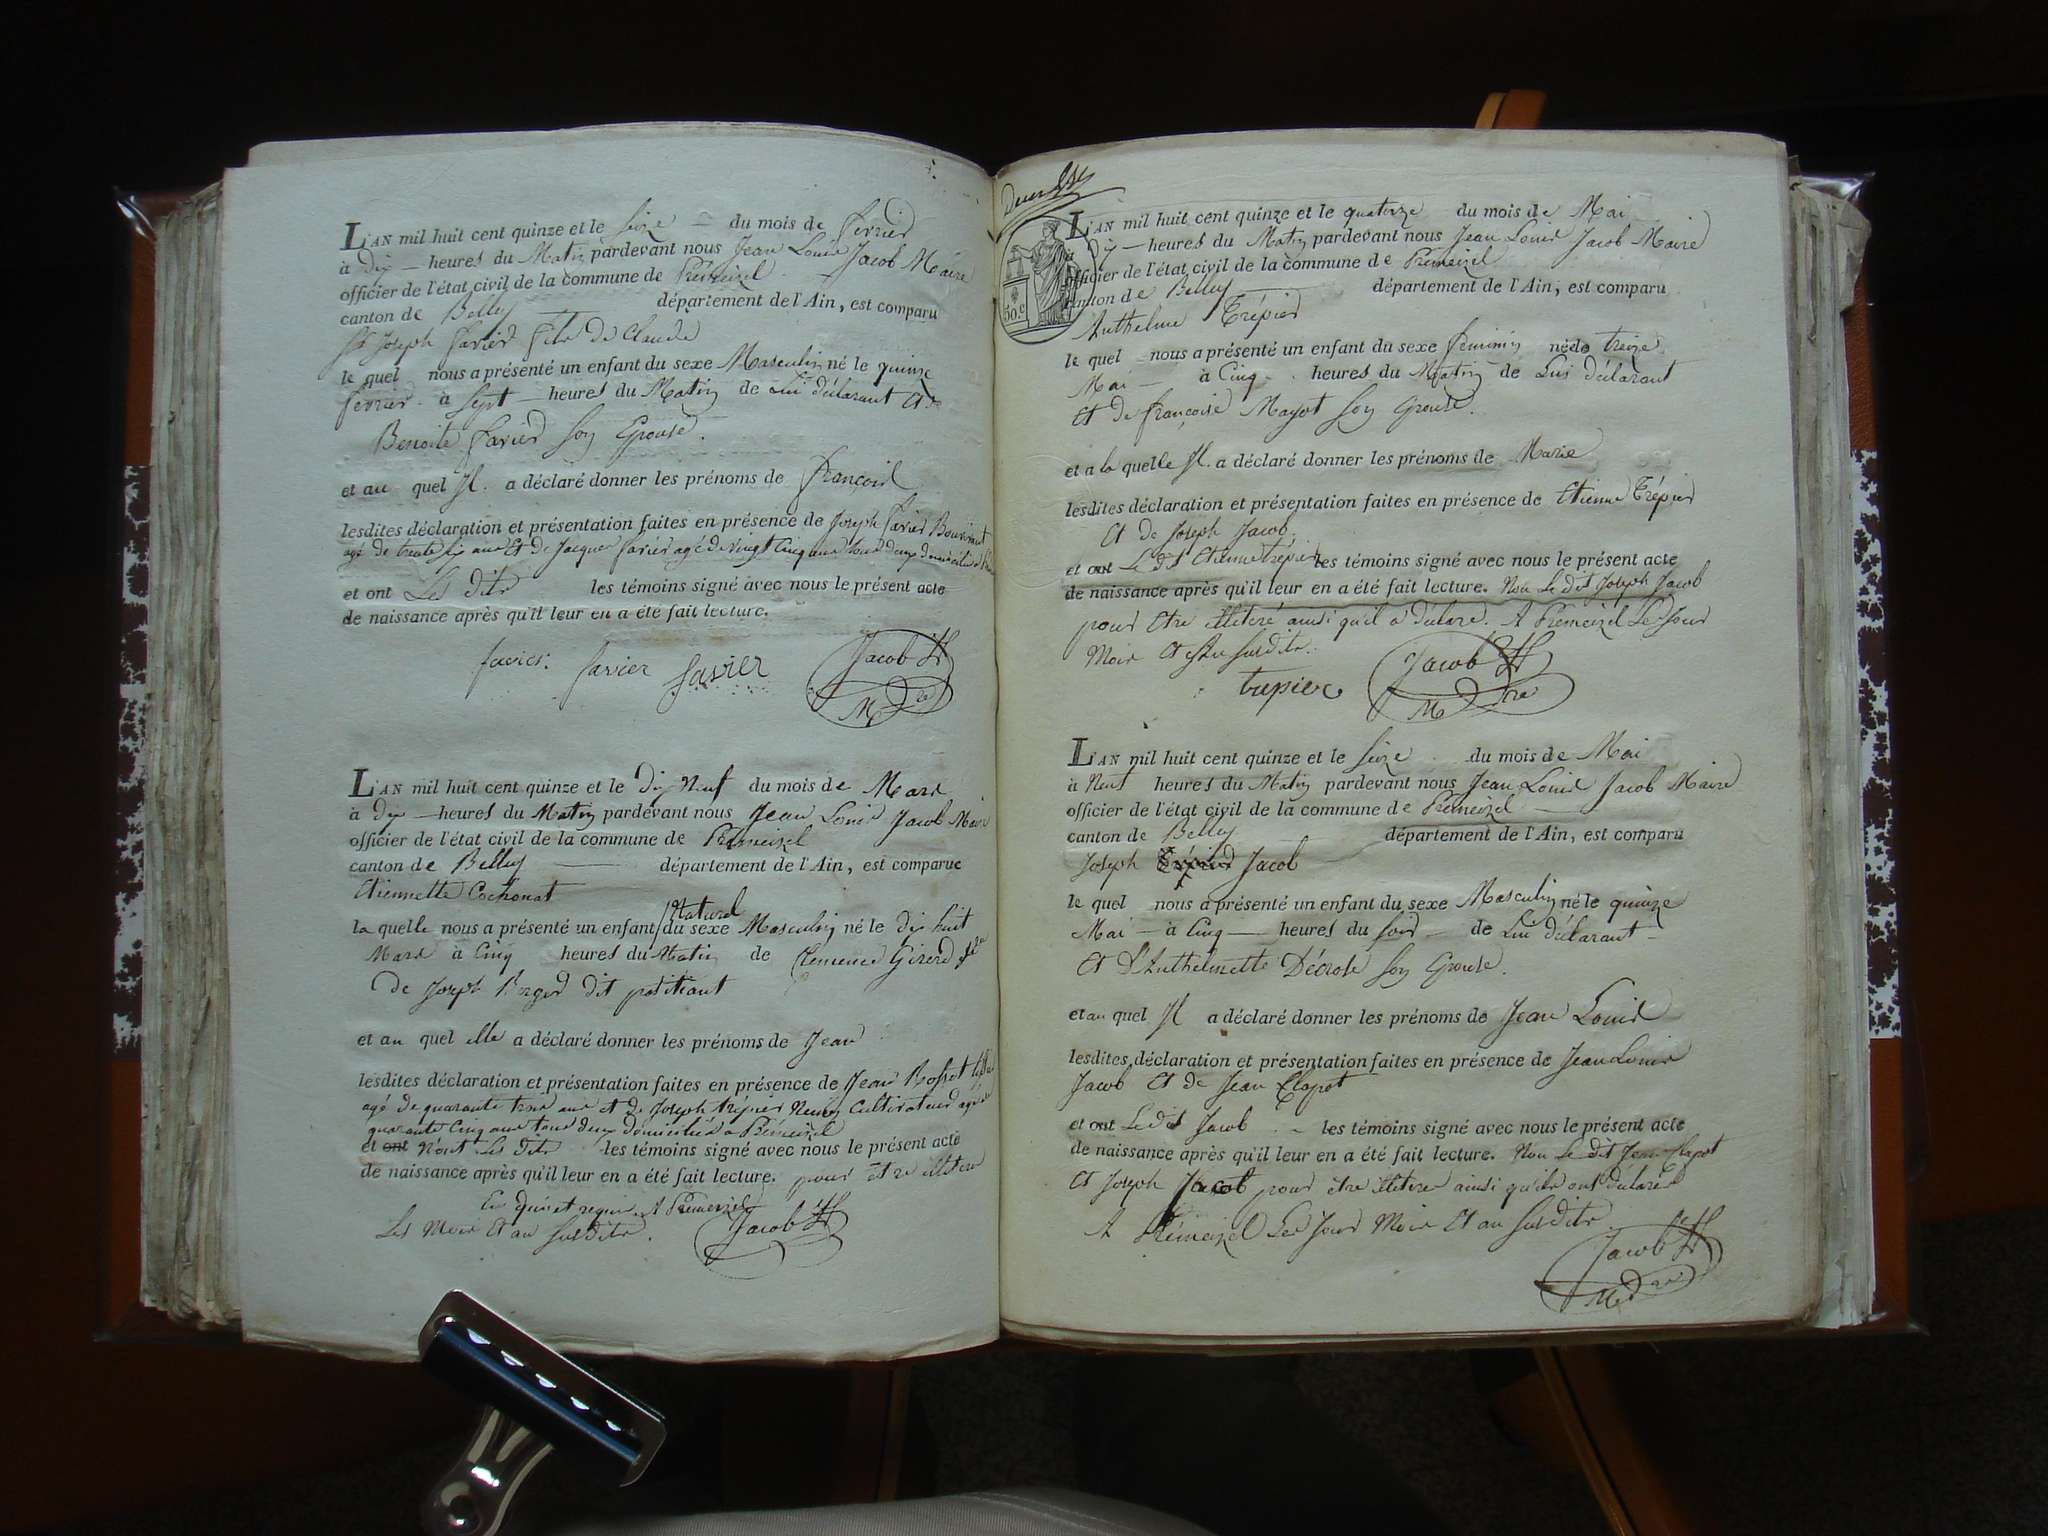 L'AN mil huit cent quinze et le Seize du mois de fevrier
à Dix heures du Matin pardevant nous Jean Louis Jacob Maire
officier de l'état civil de la commune de Prémeizel
canton de Belley département de l'Ain, est comparu
Sr Joseph favier fils de Claude
le quel nous a présenté un enfant du sexe Masculin né le quinze
fevrier à Sept heures du Matin de Lui déclarant et de
Benoite favier son Epouse.
et au quel Il a déclaré donner les prénoms de françois
lesdites déclaration et présentation faites en présence de Joseph favier
agé de trente six ans Et de Jacques favier agé de vingt cinq ans tous deux domiciliés
et ont Les dits les témoins signé avec nous le présent acte
de naissance après qu'il leur en a été fait lecture.
favier. favier favier Jacob
M re
L'AN mil huit cent quinze et le Dix Neuf du mois de Mars
à dix heures du Matin pardevant nous Jean Louis Jacob Maire
officier de l'état civil de la commune de Prémeizel
canton de Belley département de l'Ain, est comparue
Etiennette Cochonat
Naturel
la quelle nous a présenté un enfant du sexe Masculin né le dix huit
Mars à Cinq heures du Matin de Clemence Girerd
de Joseph Berger dit
et au quel elle a déclaré donner les prénoms de Jean
lesdites déclaration et présentation faites en présence de Jean Rosset
agé de quarante trois ans et de Joseph trépier Cultivateur agé de
quarante Cinq ans tous deux domiciliés a Prémeizel
et ont N'ont Les Dits les témoins signé avec nous le présent acte
de naissance après qu'il leur en a été fait lecture. pour être illiteré
En quiet requis. A Prémeizel
Les Mois Et an susdits. Jacob
L'AN mil huit cent quinze et le quatorze du mois de Mai
à Dix heures du Matin pardevant nous Jean Louis Jacob Maire
officier de l'état civil de la commune de Prémeizel
canton de Belley département de l'Ain, est comparu
50.c
Anthelme Trépier
le quel nous a présenté un enfant du sexe féminin né le treize
Mai à Cinq heures du Matin de Lui déclarant
Et de françoise Mayot son Epouse.
et a la quelle Il a déclaré donner les prénoms de Marie
lesdites déclaration et présentation faites en présence de Etienne Trépier
Et de Joseph Jacob.
et ont Le dit Etienne trépier les témoins signé avec nous le présent acte
de naissance après qu'il leur en a été fait lecture. Non Le dit Joseph Jacob
pour Etre illiteré ainsi qu'il a déclaré. A Prémeizel Les Jour
Mois Et an susdits.
trepier Jacob
M re
L'AN mil huit cent quinze et le Seize du mois de Mai
à Neuf heures du Matin pardevant nous Jean Louis Jacob Maire
officier de l'état civil de la commune de Prémeizel
canton de Belley département de l'Ain, est comparu
Joseph Trépier Jacob
le quel nous a présenté un enfant du sexe Masculin né le quinze
Mai à Cinq heures du Soir de Lui déclarant
Et D'Anthelmette Décrose son Epouse.
et au quel Il a déclaré donner les prénoms de Jean Louis
lesdites déclaration et présentation faites en présence de Jean Louis
Jacob Et de Jean Clapot
et ont Le dit Jacob les témoins signé avec nous le présent acte
de naissance après qu'il leur en a été fait lecture. Non Le dit Jean Clapot
Et Joseph Jacob pour être illiteré ainsi qu'ils ont déclaré
A Prémeizel Les Jour Mois Et an susdits.
Jacob
M re